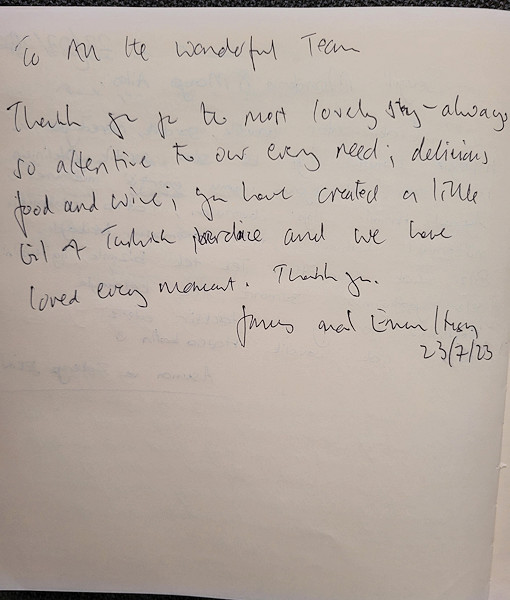 To All the wonderful Team
Thank you for the most lovely stay - always
so attentive to our every need; delicious
food and wine; you have created a little
bit of Turkish paradise and we have
loved every moment. Thank you.
James and Emma
23/7/23